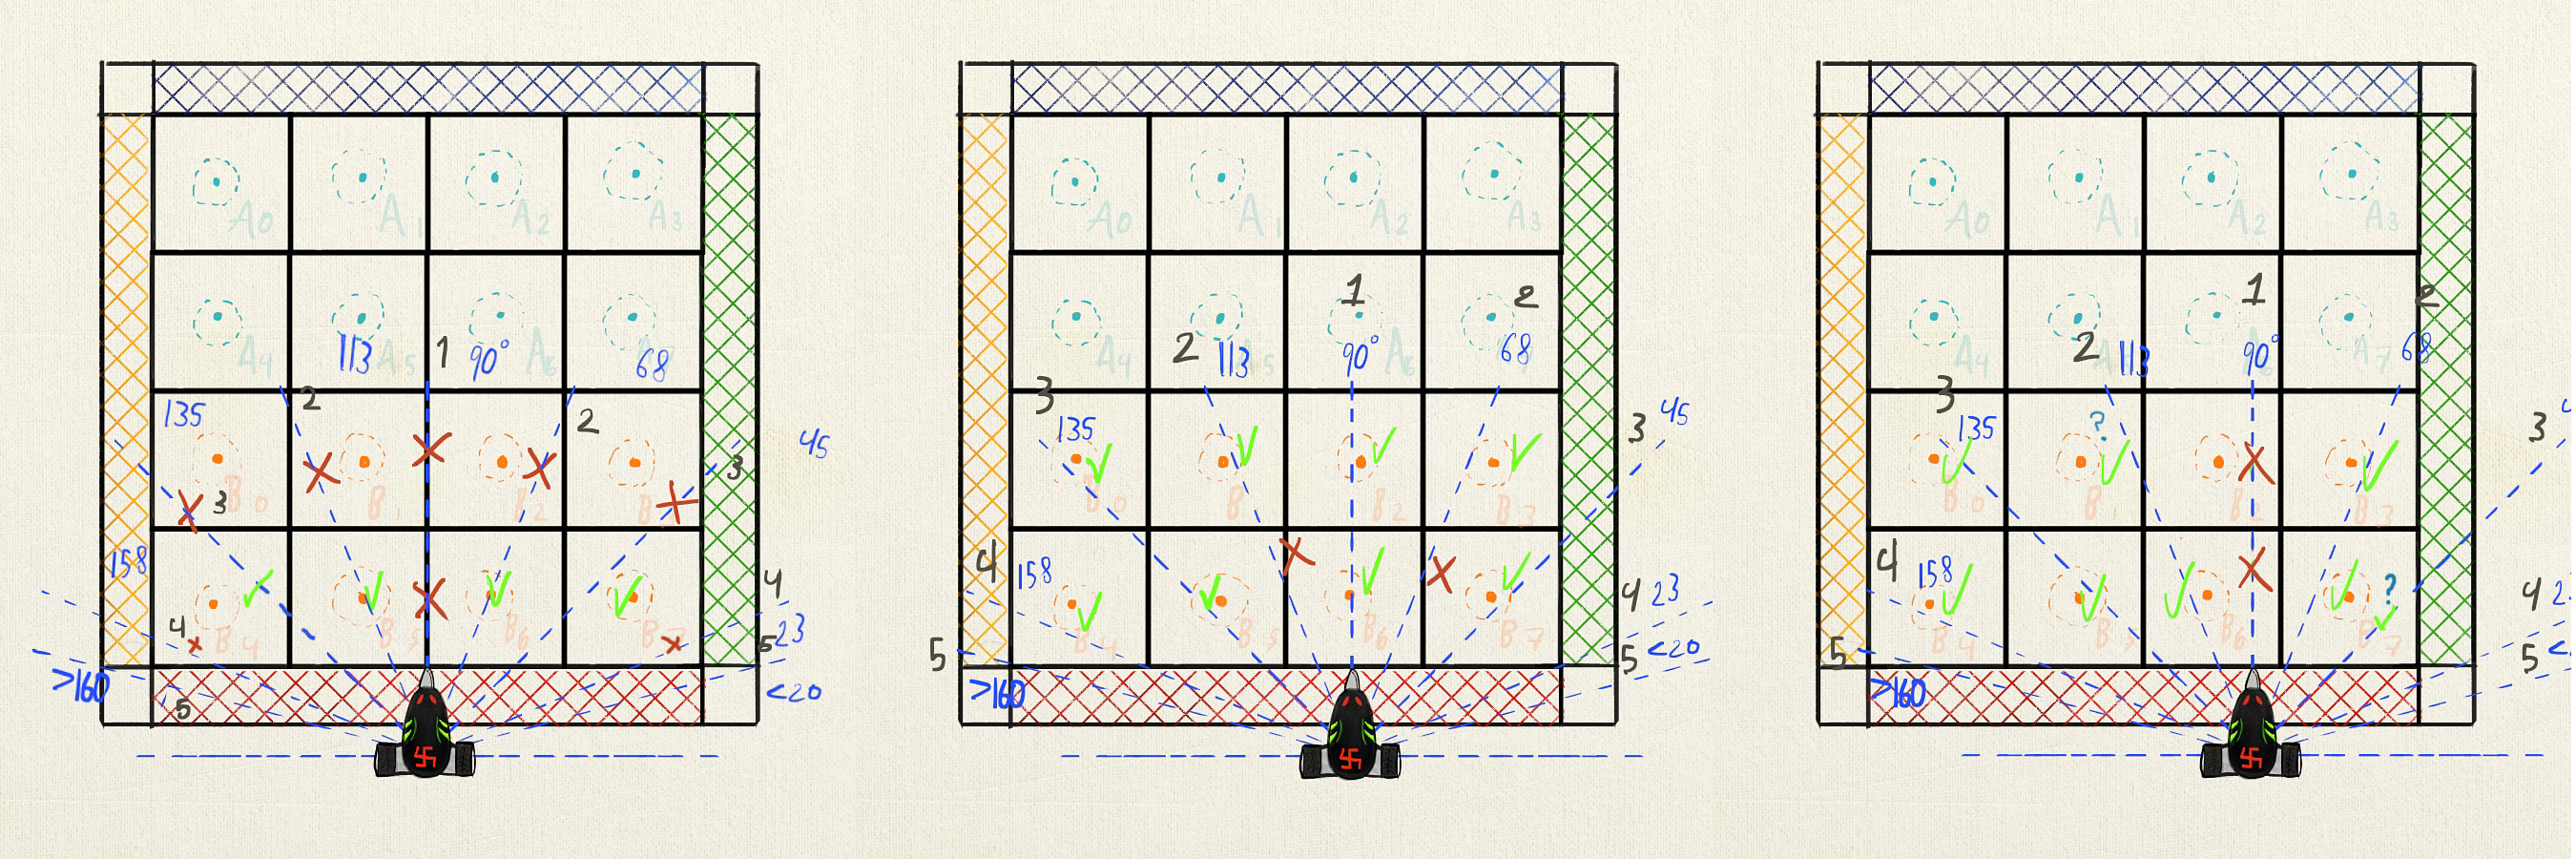 A0 A1 A2 A3
A4 113 A5 1 90° A6 68
135 2 2 45
B0 3 B1 B2 3
158 4
4 B4 B5 B6 B7 5 23
>160 5 <20
A0 A1 A2 A3
1 2
A4 2 113 90° A6 68
3 135 3 45
B0 B1 B2 B3
4 158 4 23
5 B4 B5 B6 B7 5 <20
>160
A0 A1 A2 A3
1 2
A4 2 113 90° A7 68
3 135 ? 3
B0 B1 B2 B3
4 158 ? 4 2
5 B4 B6 B7 5 <
>160